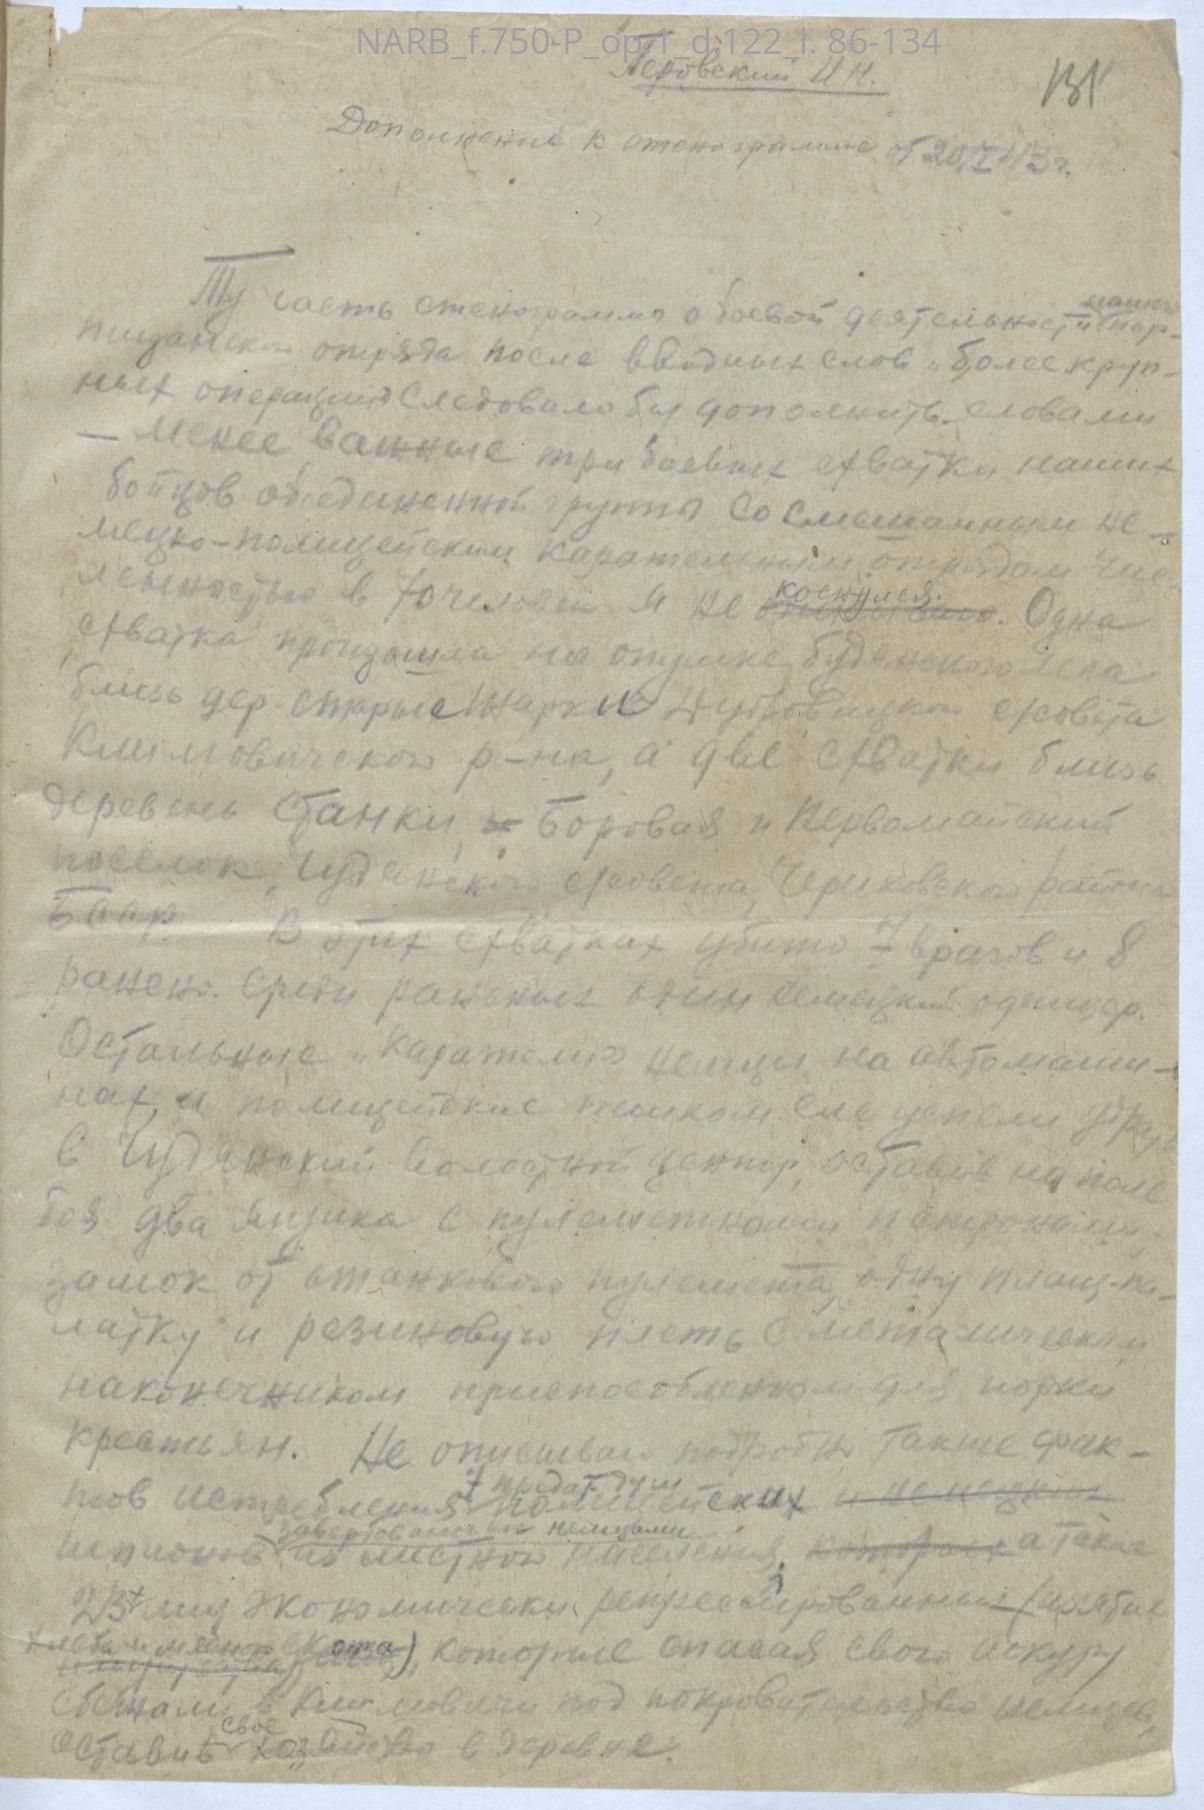 NARB_f.750-P_op.1_d.122_l. 86-134
Перовский И Н.
131
Дополнение к стенограмме от 20/I 43 г.
нашего
Ту часть стенограммы о боевой деятельности пар-
тизанского отряда после вводных слов „более круп-
ных операций" следовало бы дополнить словами
— менее важные три боевых схватки наших
бойцов объединенной группы со смешанным не-
мецко-полицейским карательным отрядом чис-
ленностью в 70 человек я не коснулся. Одна
схватка произошла на опушке Буденского леса
близь дер. Старые Шарки Дубровицкого с/совета
Климовического р-на, а две схватки близь
деревень Станки, Боровая и Первомайский
поселок, Чудянского с/совета, Чериковского района
БССР. В этих схватках убито 7 врагов и 8
ранено. Среди раненых один немецкий офицер.
Остальные „каратели" немцы на автомаши-
нах, и полицейские пешком еле успели удрать
в Чудянский волостной центр, оставив на поле
боя два ящика с пулеметными патронами,
замок от станкового пулемета, одну плащ-па-
латку и резиновую плеть с металическим
наконечником приспособленном для порки
крестьян. Не описываю подробно также фак-
тов истребления 7 предат. душ полицейских и немецких
завербованных немцами
шпионов из местного населения, которых а также
23х лиц экономически репрессированных (изятие
хлеба и мясного скота), которые спасая свою шкуру
сбежали в Климовичи под покровительство немцев,
оставив свое хозяйство в деревне.